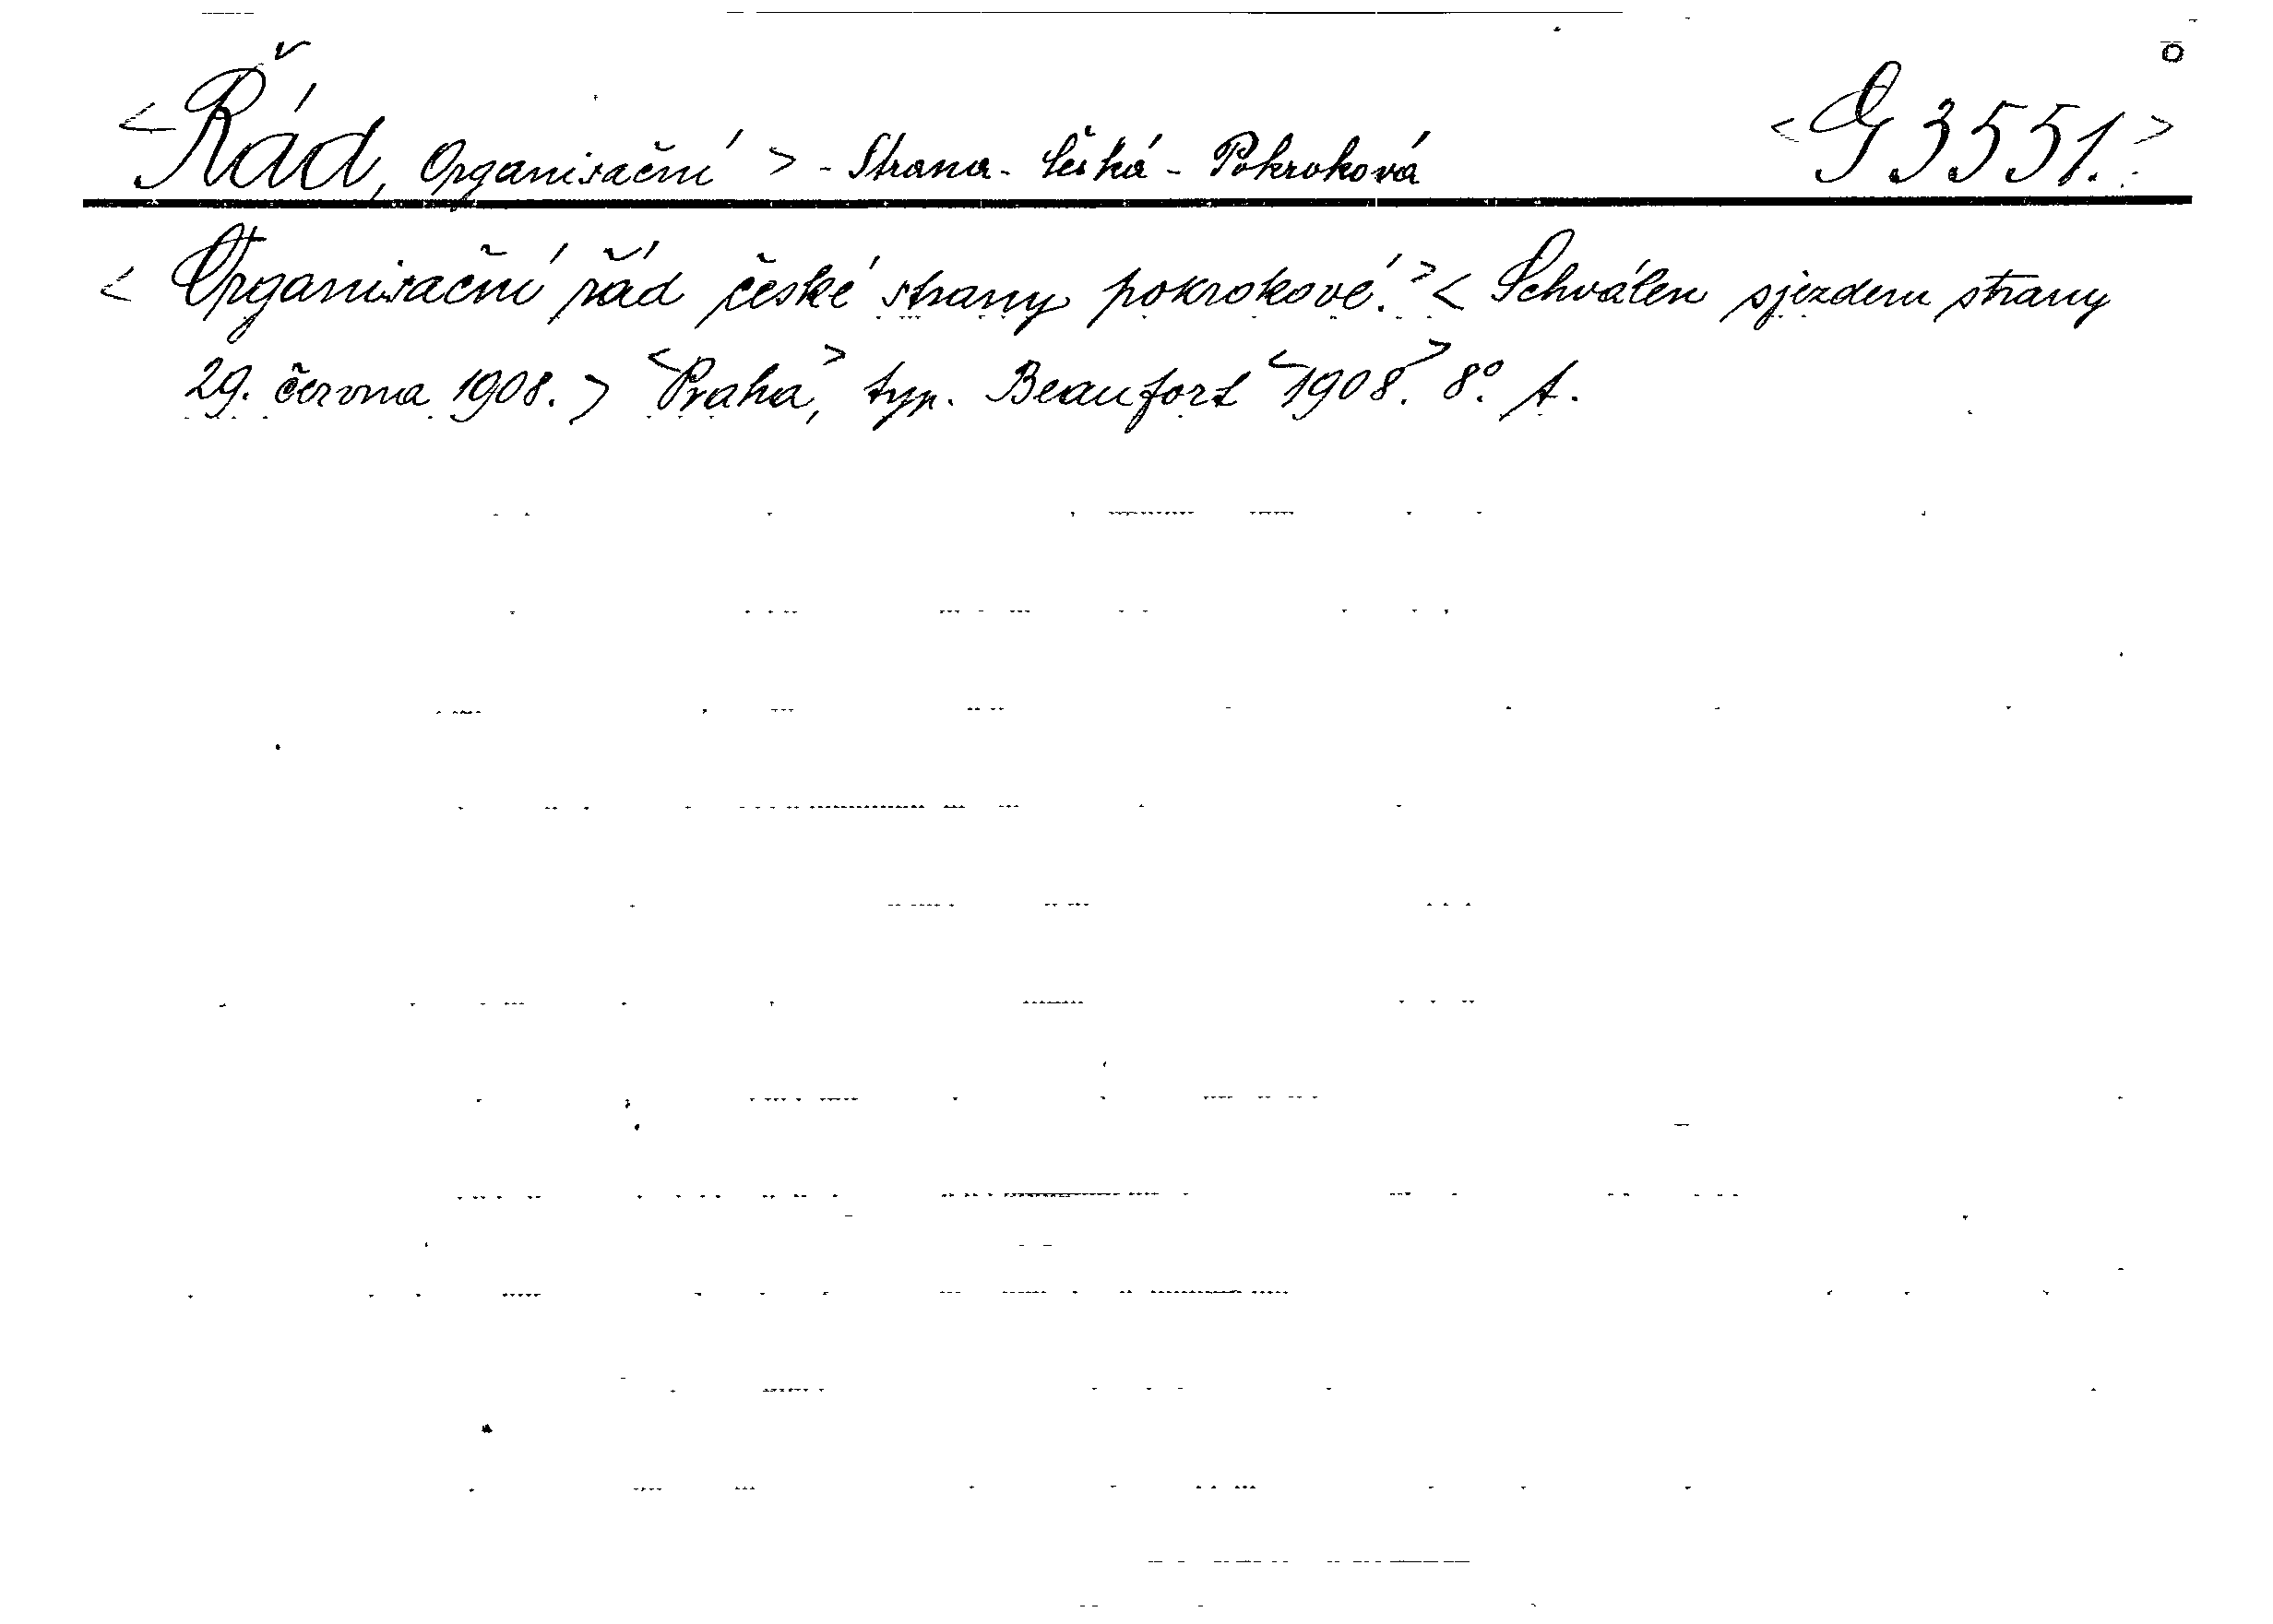 <Řád, Organisační> - Strana - Česká - Pokroková <G 3551.>
<Organisační řád české strany pokrokové.> <Schválen sjezdem strany
29. června 1908.> <Praha>, typ. Beaufort <1908.> 8°. A.